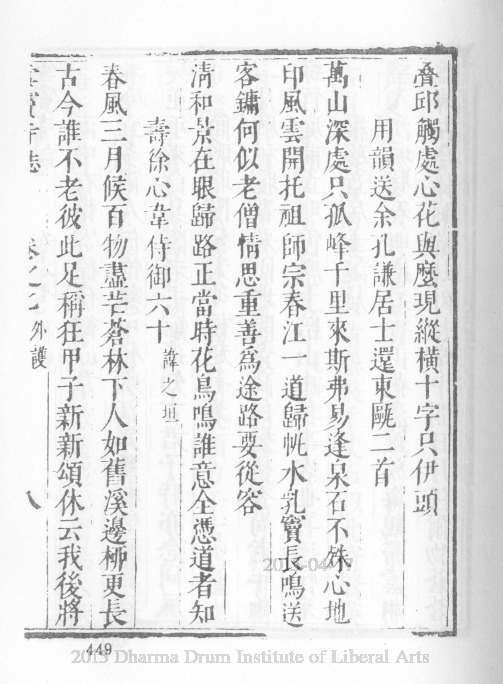 疊邱觸處心花與麼現縱橫十字只伊頭
用韻送余孔謙居士還東甌二首
萬山深處只孤峰千里來斯弗易逢泉石不殊心地
印風雲開托祖師宗春江一道歸帆水乳竇長鳴送
客鏞何似老僧情思重善為途路要從容
清和景在眼歸路正當時花鳥鳴誰意全憑道者知
壽徐心韋侍御六十 諱之垣
春風三月候百物盡芒蒼林下人如舊溪邊柳更長
古今誰不老彼此足稱狂甲子新新頌休云我後將
寺志 卷之七 外護 八
449
2013 Dharma Drum Institute of Liberal Arts